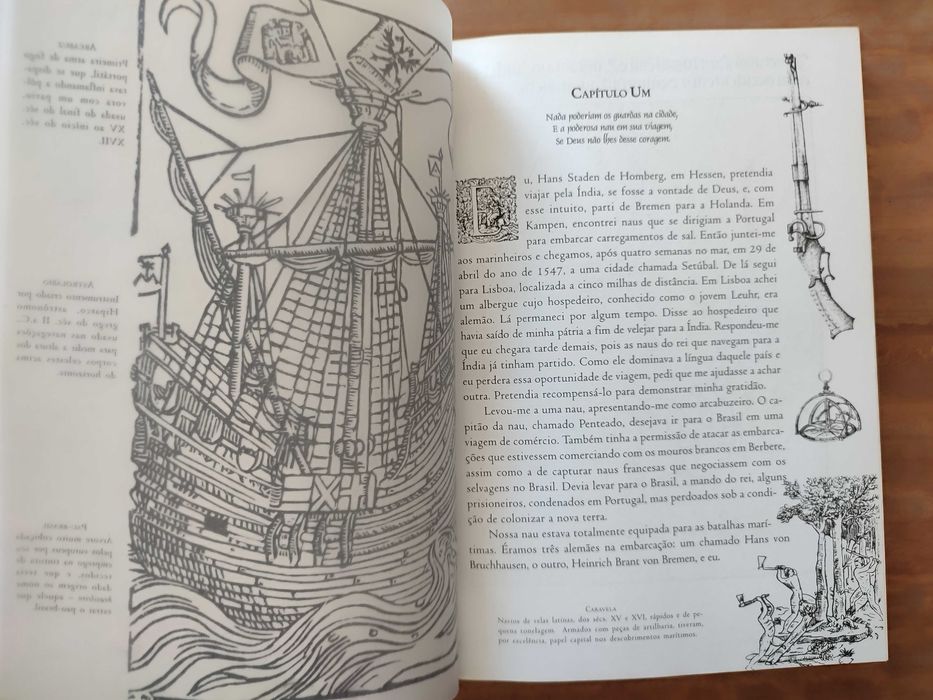 ARCABUZ
Primeira arma de fogo
portátil, que se dispa-
rava inflamando a pól-
vora com um pavio,
usada do final do séc.
XV ao início do séc.
XVII.
ASTROLÁBIO
Instrumento criado por
Hiparco, astrônomo
grego do séc. II a.C.,
usado nas navegações
para medir a altura dos
corpos celestes acima
do horizonte.
PAU-BRASIL
Árvore muito cobiçada
pelos europeus por seu
emprego na tintura de
tecidos, e que teria
dado origem ao nome
brasileiro – aquele que
extrai o pau-brasil.
CAPÍTULO UM
Nada poderiam os guardas na cidade,
E a poderosa nau em sua viagem,
Se Deus não lhes desse coragem.
Eu, Hans Staden de Homberg, em Hessen, pretendia
viajar pela Índia, se fosse a vontade de Deus, e, com
esse intuito, parti de Bremen para a Holanda. Em
Kampen, encontrei naus que se dirigiam a Portugal
para embarcar carregamentos de sal. Então juntei-me
aos marinheiros e chegamos, após quatro semanas no mar, em 29 de
abril do ano de 1547, a uma cidade chamada Setúbal. De lá segui
para Lisboa, localizada a cinco milhas de distância. Em Lisboa achei
um albergue cujo hospedeiro, conhecido como o jovem Leuhr, era
alemão. Lá permaneci por algum tempo. Disse ao hospedeiro que
havia saído de minha pátria a fim de velejar para a Índia. Respondeu-me
que eu chegara tarde demais, pois as naus do rei que navegam para a
Índia já tinham partido. Como ele dominava a língua daquele país e
eu perdera essa oportunidade de viagem, pedi que me ajudasse a achar
outra. Pretendia recompensá-lo para demonstrar minha gratidão.
Levou-me a uma nau, apresentando-me como arcabuzeiro. O ca-
pitão da nau, chamado Penteado, desejava ir para o Brasil em uma
viagem de comércio. Também tinha a permissão de atacar as embarca-
ções que estivessem comerciando com os mouros brancos em Berbere,
assim como a de capturar naus francesas que negociassem com os
selvagens no Brasil. Devia levar para o Brasil, a mando do rei, alguns
prisioneiros, condenados em Portugal, mas perdoados sob a condi-
ção de colonizar a nova terra.
Nossa nau estava totalmente equipada para as batalhas marí-
timas. Éramos três alemães na embarcação: um chamado Hans von
Bruchhausen, o outro, Heinrich Brant von Bremen, e eu.
CARAVELA
Navios de velas latinas, dos sécs. XV e XVI, rápidos e de pe-
quena tonelagem. Armados com peças de artilharia, tiveram,
por excelência, papel capital nos descobrimentos marítimos.